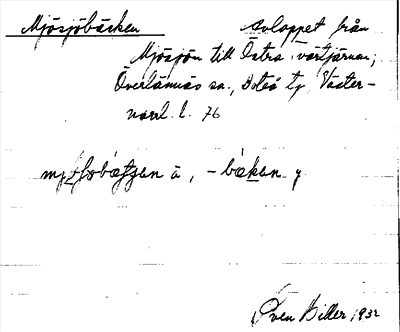 Mjösjöbäcken Avloppet från
Mjösjön till Östra Svartjärnen,
Överlännäs sn., Boteå tg Väster-
norrl. l. 76
-bäken y
Sven Biller 1932